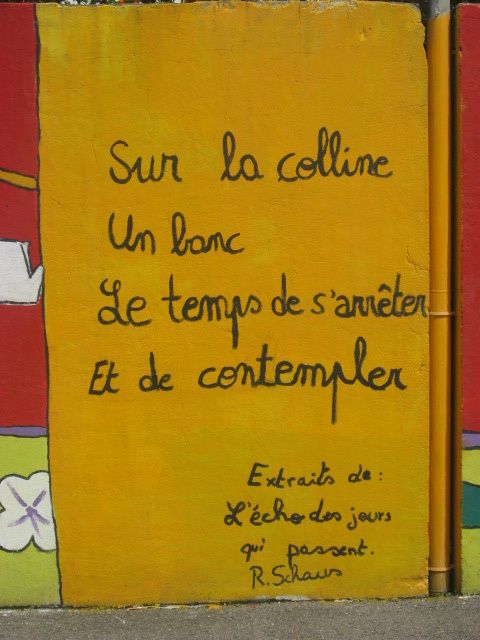 Sur la colline
Un banc
Le temps de s'arrêter
Et de contempler
Extraits de :
L'écho des jours
qui passent.
R. Schaus